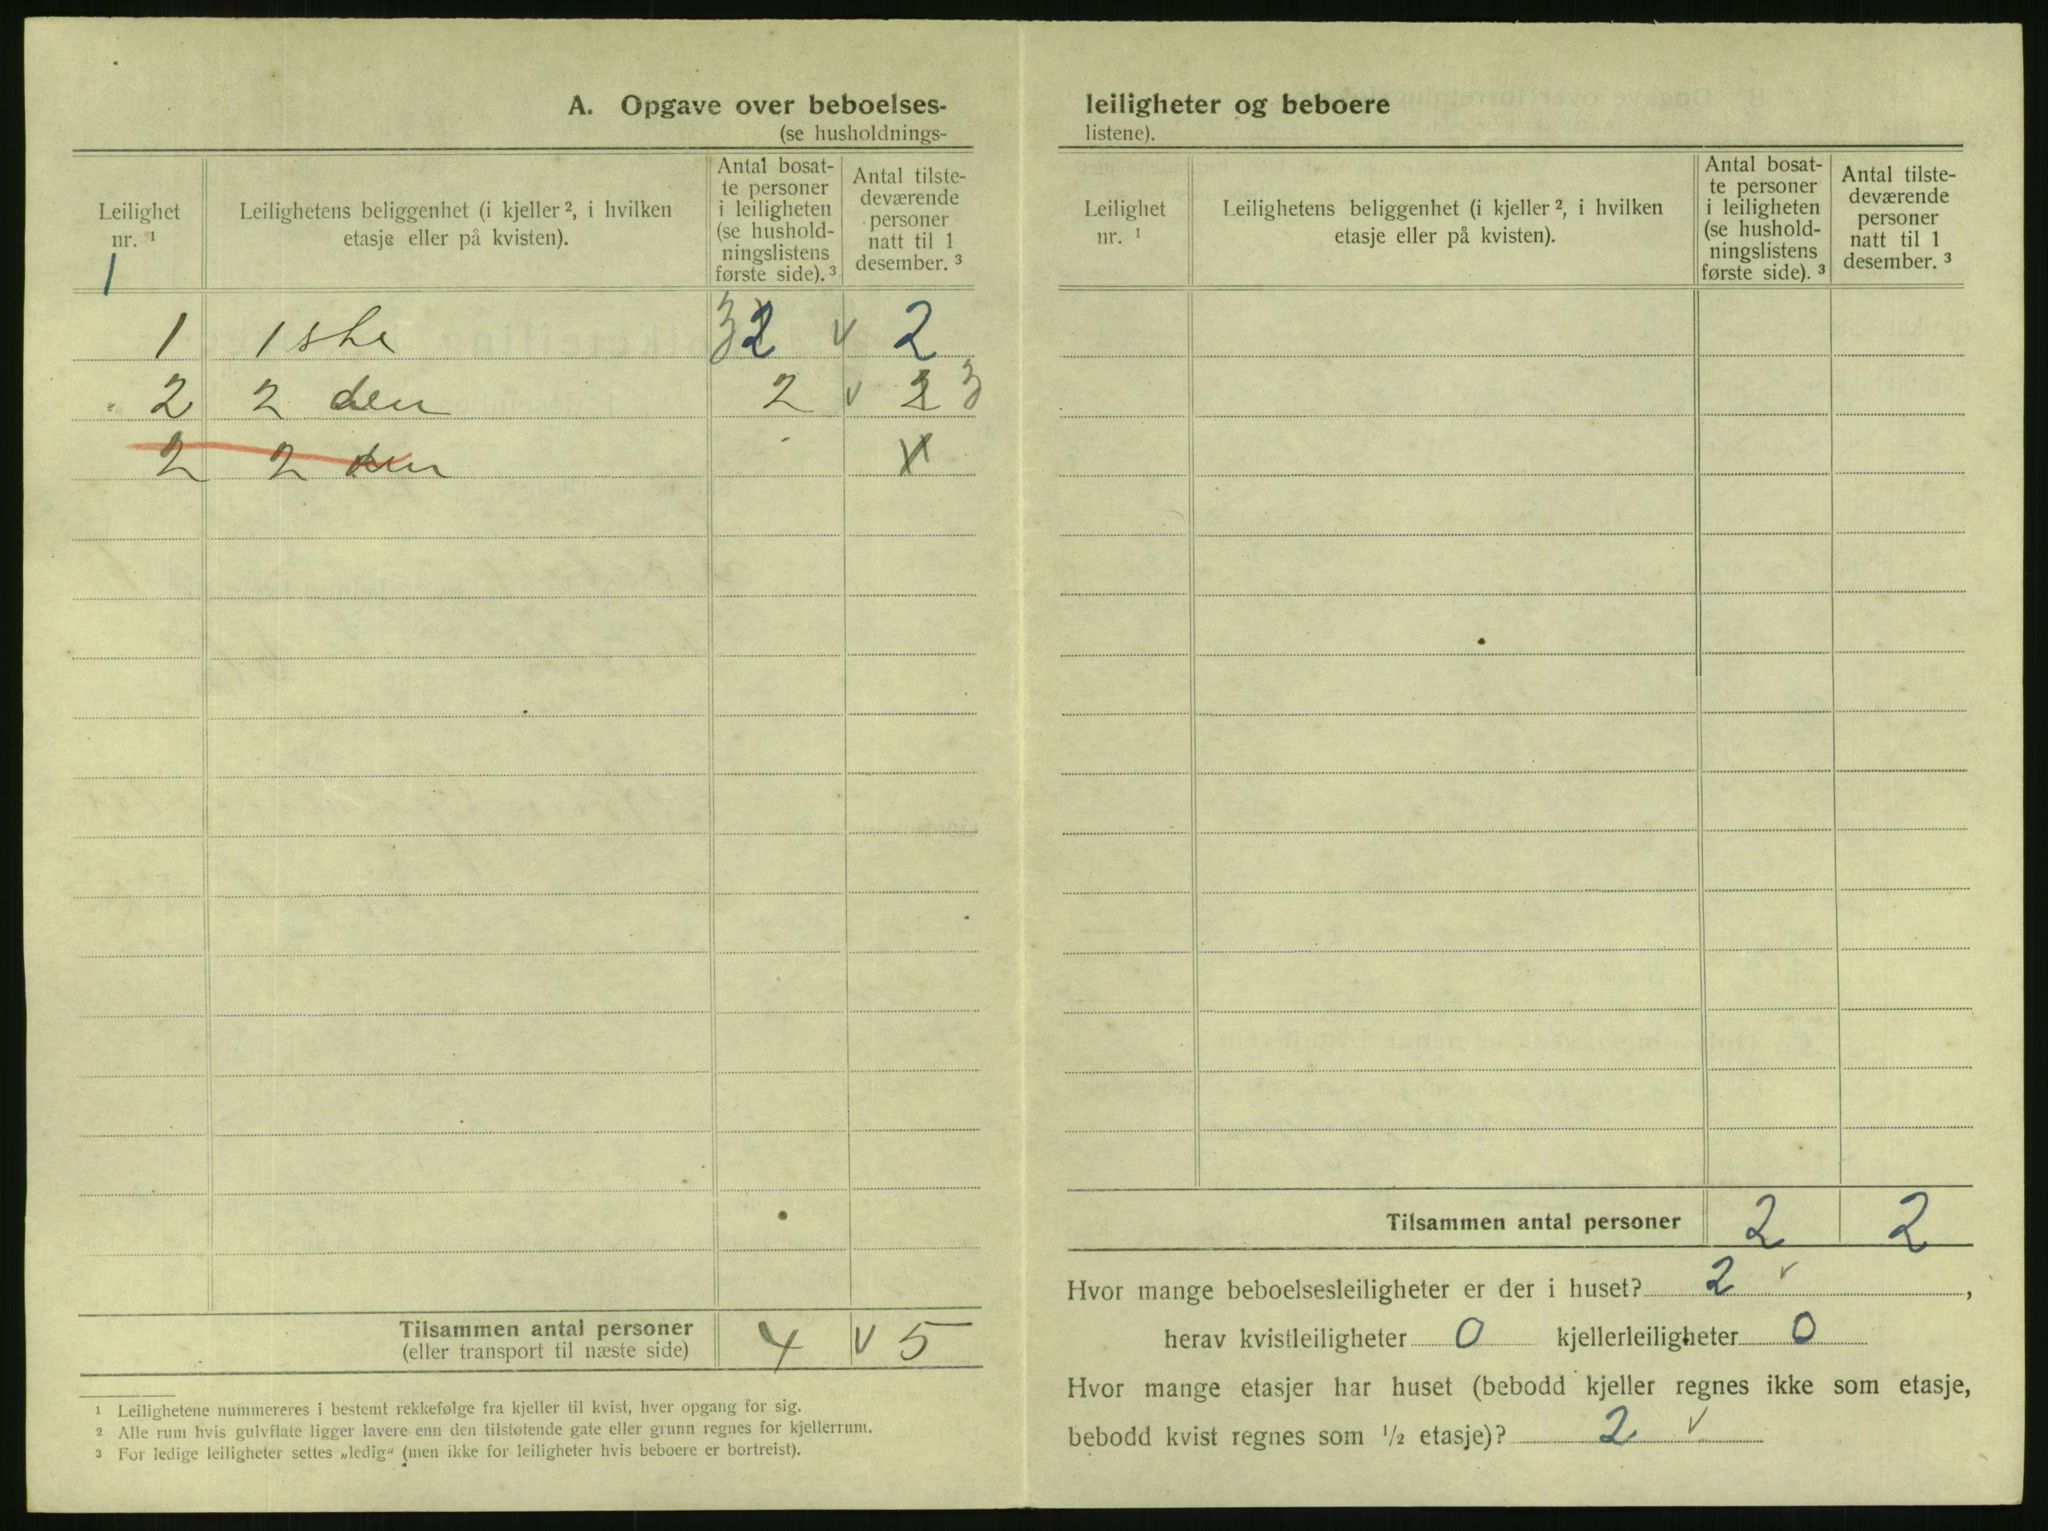 A. Opgave over beboelses-
(se husholdnings-
Leilighet
nr. ¹
Leilighetens beliggenhet (i kjeller ², i hvilken
etasje eller på kvisten).
Antal bosat-
te personer
i leiligheten
(se hushold-
ningslistens
første side). ³
Antal tilste-
deværende
personer
natt til 1
desember. ³
1
1 1ste 3 2 v 2
2 2 den 2 v 2 3
2 2 den
Tilsammen antal personer
(eller transport til næste side)
4 v 5
¹ Leilighetene nummereres i bestemt rekkefølge fra kjeller til kvist, hver opgang for sig.
² Alle rum hvis gulvflate ligger lavere enn den tilstøtende gate eller grunn regnes for kjellerrum.
³ For ledige leiligheter settes „ledig“ (men ikke for leiligheter hvis beboere er bortreist).
leiligheter og beboere
listene).
Leilighet
nr. ¹
Leilighetens beliggenhet (i kjeller ², i hvilken
etasje eller på kvisten).
Antal bosat-
te personer
i leiligheten
(se hushold-
ningslistens
første side). ³
Antal tilste-
deværende
personer
natt til 1
desember. ³
Tilsammen antal personer 2 2
Hvor mange beboelsesleiligheter er der i huset? 2 v ,
herav kvistleiligheter 0 kjellerleiligheter 0
Hvor mange etasjer har huset (bebodd kjeller regnes ikke som etasje,
bebodd kvist regnes som ½ etasje)? 2 v